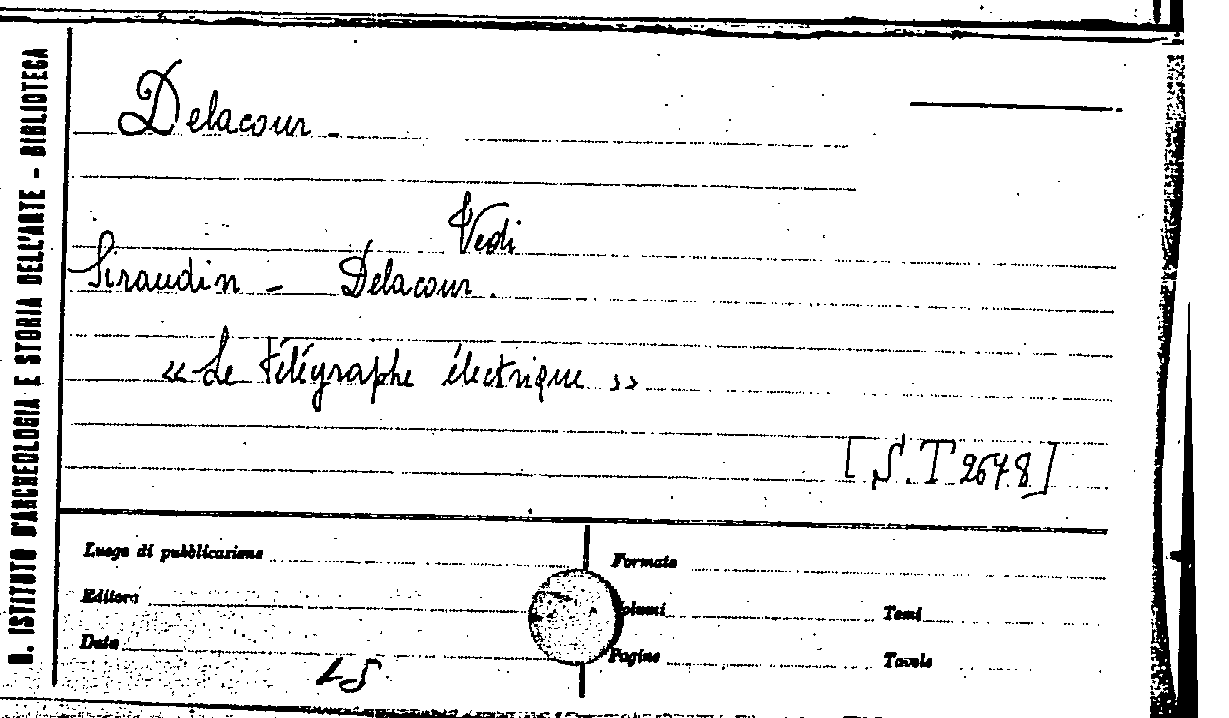 R. ISTITUTO D'ARCHEOLOGIA E STORIA DELL'ARTE - BIBLIOTECA
Delacour -
Vedi
Siraudin - Delacour.
« Le télégraphe électrique »
[S.T 2678]
Luogo di pubblicazione
Formato
Editore
Volumi
Tomi
Data
Pagine
Tavole
LS